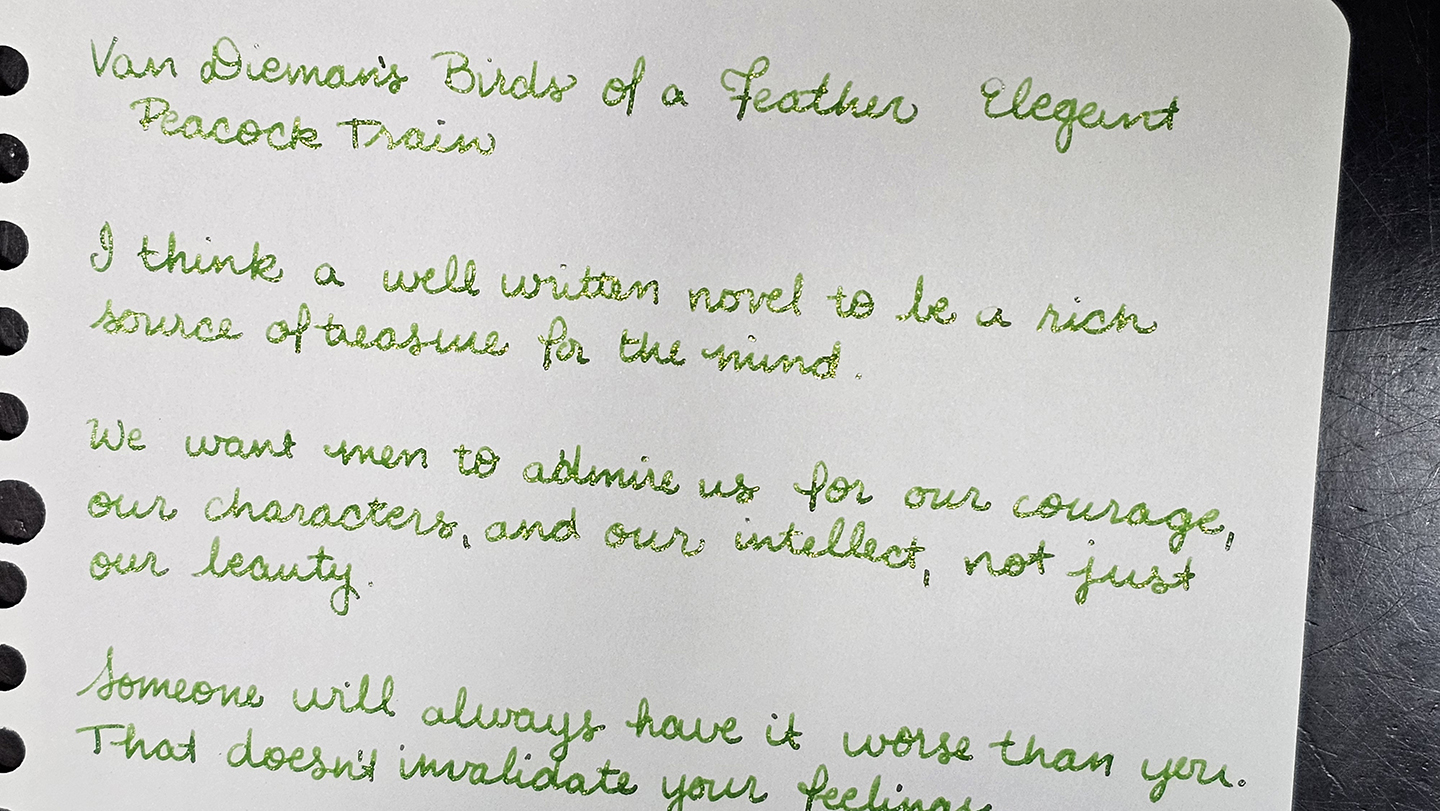 Van Dieman's Birds of a Feather Elegant
Peacock Train
I think a well written novel to be a rich
source of treasure for the mind.
We want men to admire us for our courage,
our characters, and our intellect, not just
our beauty.
Someone will always have it worse than you.
That doesn't invalidate your feelings